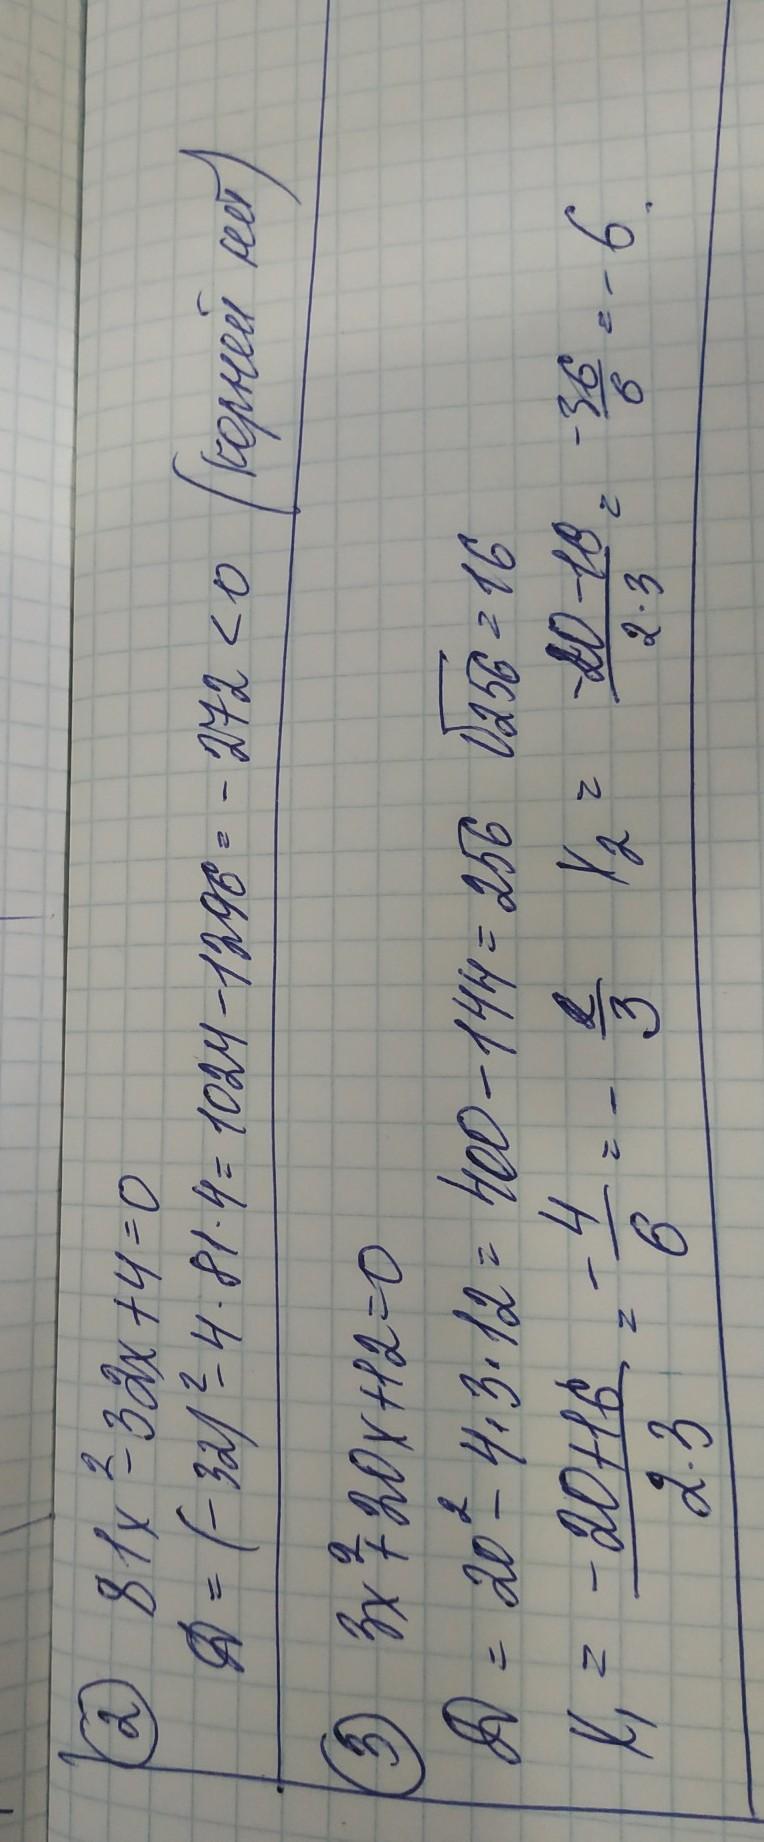 ② 81x² - 32x + 4 = 0
D = (-32)² - 4 · 81 · 4 = 1024 - 1296 = - 272 < 0 (корней нет)
③ 3x² + 20x + 12 = 0
D = 20² - 4 · 3 · 12 = 400 - 144 = 256 √256 = 16
x₁ = (-20+16)/(2·3) = -4/6 = -2/3 x₂ = (-20-16)/(2·3) = -36/6 = -6.